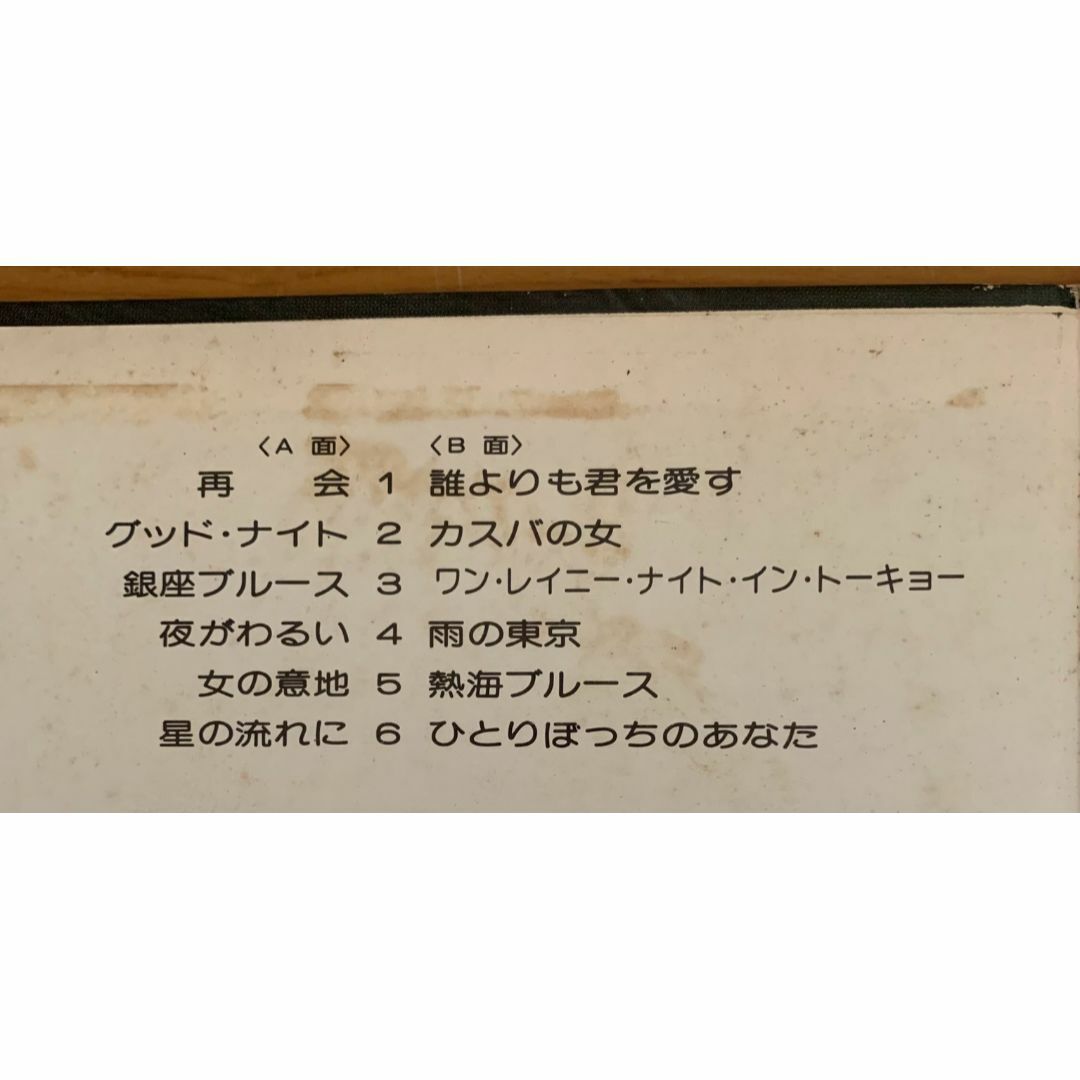 〈A 面〉 〈B 面〉
再 会 1 誰よりも君を愛す
グッド・ナイト 2 カスバの女
銀座ブルース 3 ワン・レイニー・ナイト・イン・トーキョー
夜がわるい 4 雨の東京
女の意地 5 熱海ブルース
星の流れに 6 ひとりぼっちのあなた